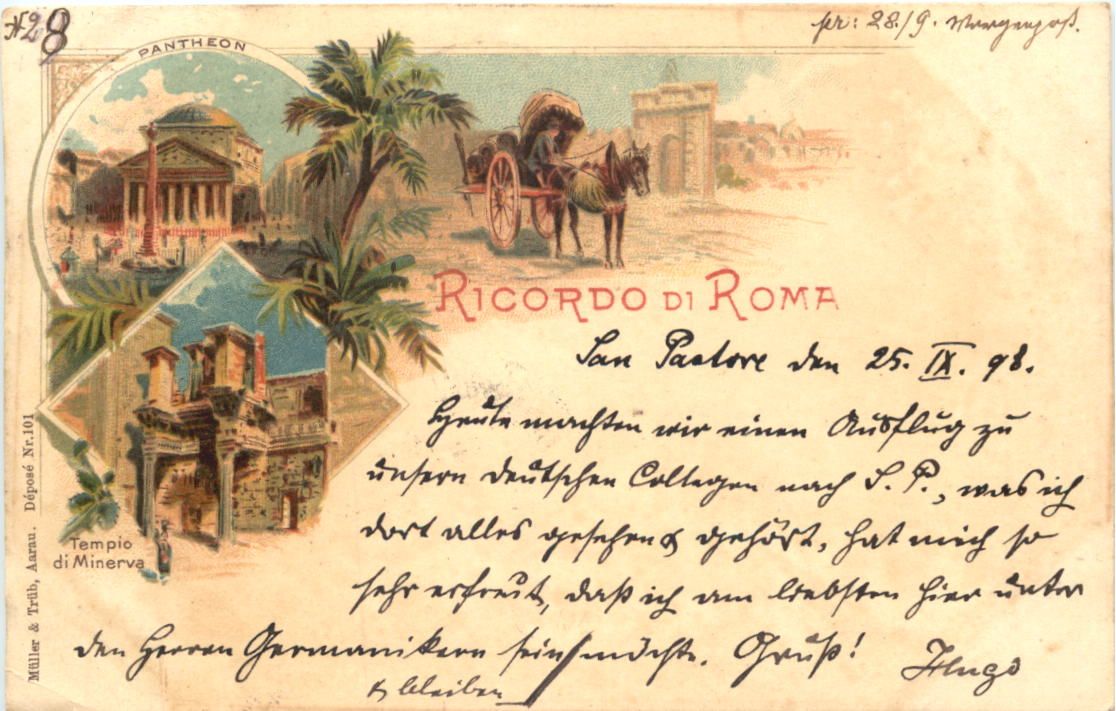 № 28
pr: 28./9. Morgenpost.
PANTHEON
RICORDO DI ROMA
San Pastore den 25. IX. 98.
Heute machten wir einen Ausflug zu
unsern deutschen Collegen nach S. P., was ich
dort alles gesehen & gehört, hat mich so
sehr erfreut, daß ich am liebsten hier unter
den Herren Germanikern sein möchte. Gruß! Hugo
& bleiben
Tempio
di Minerva
Müller & Trüb, Aarau. Déposé Nr. 101